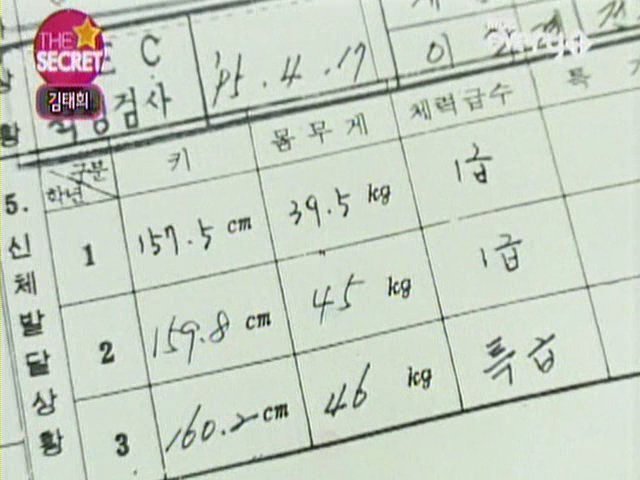 THE
SECRET
김태희
C
'95. 4. 17
적성검사
이
구분
학년
키
몸무게
체력급수
특
5.
신체발달상황
1
157.5 cm
39.5 kg
1급
2
159.8 cm
45 kg
1급
3
160.2 cm
46 kg
특급